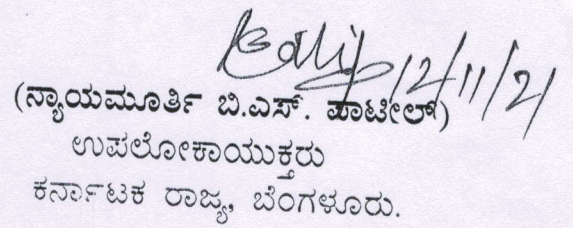 12/11/21
(ನ್ಯಾಯಮೂರ್ತಿ ಬಿ.ಎಸ್. ಪಾಟೀಲ್)
ಉಪಲೋಕಾಯುಕ್ತರು
ಕರ್ನಾಟಕ ರಾಜ್ಯ, ಬೆಂಗಳೂರು.